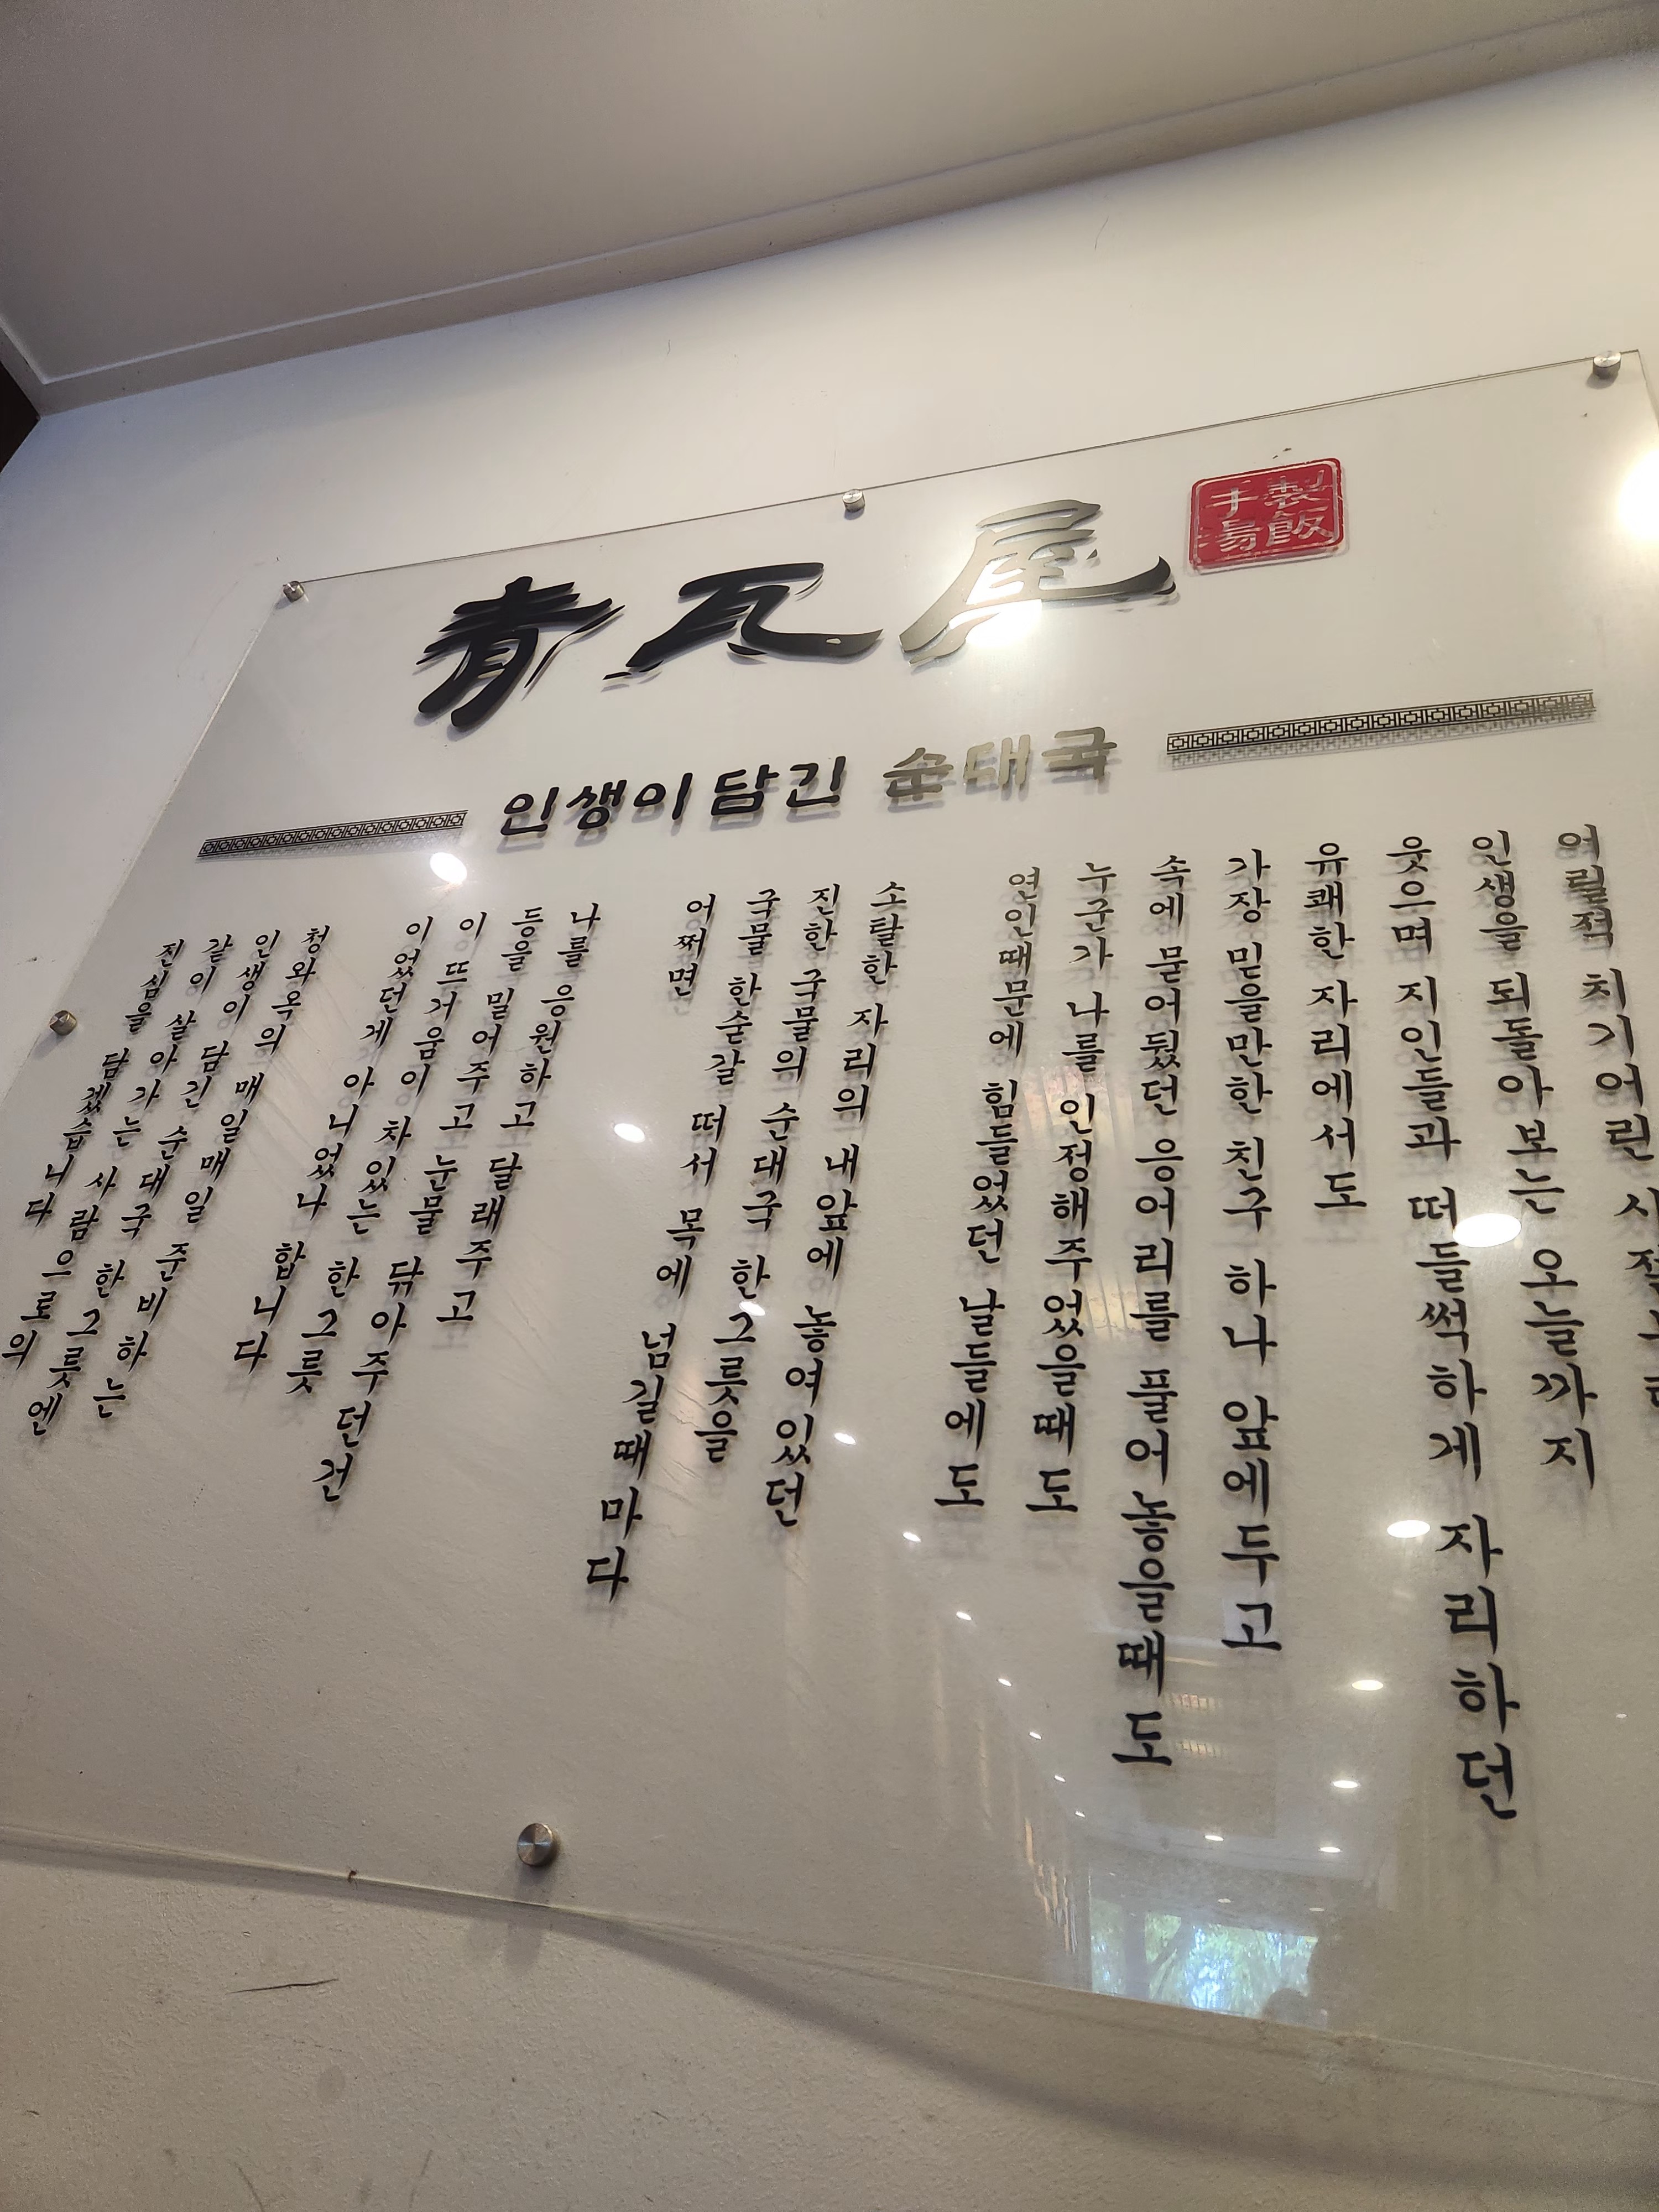 靑瓦屋
手製
湯飯
인생이 담긴 순대국
어릴적 치기어린
인생을 되돌아보는 오늘까지
웃으며 지인들과 떠들썩하게 자리하던
유쾌한 자리에서도
가장 믿을만한 친구 하나 앞에두고
속에 묻어뒀던 응어리를 풀어놓을때도
누군가 나를 인정해주었을때도
연인때문에 힘들었던 날들에도
소탈한 자리의 내앞에 놓여있던
진한 국물의 순대국 한그릇을
국물 한숟갈 떠서 목에 넘길때마다
어쩌면
나를 응원하고 달래주고
등을 밀어주고 눈물 닦아주던건
이 뜨거움이 차있는 한그릇
이었던게 아니었나 합니다
청와옥의 매일매일 준비하는
인생이 담긴 순대국 한그릇엔
같이 살아가는 사람으로의
진심을 담겠습니다